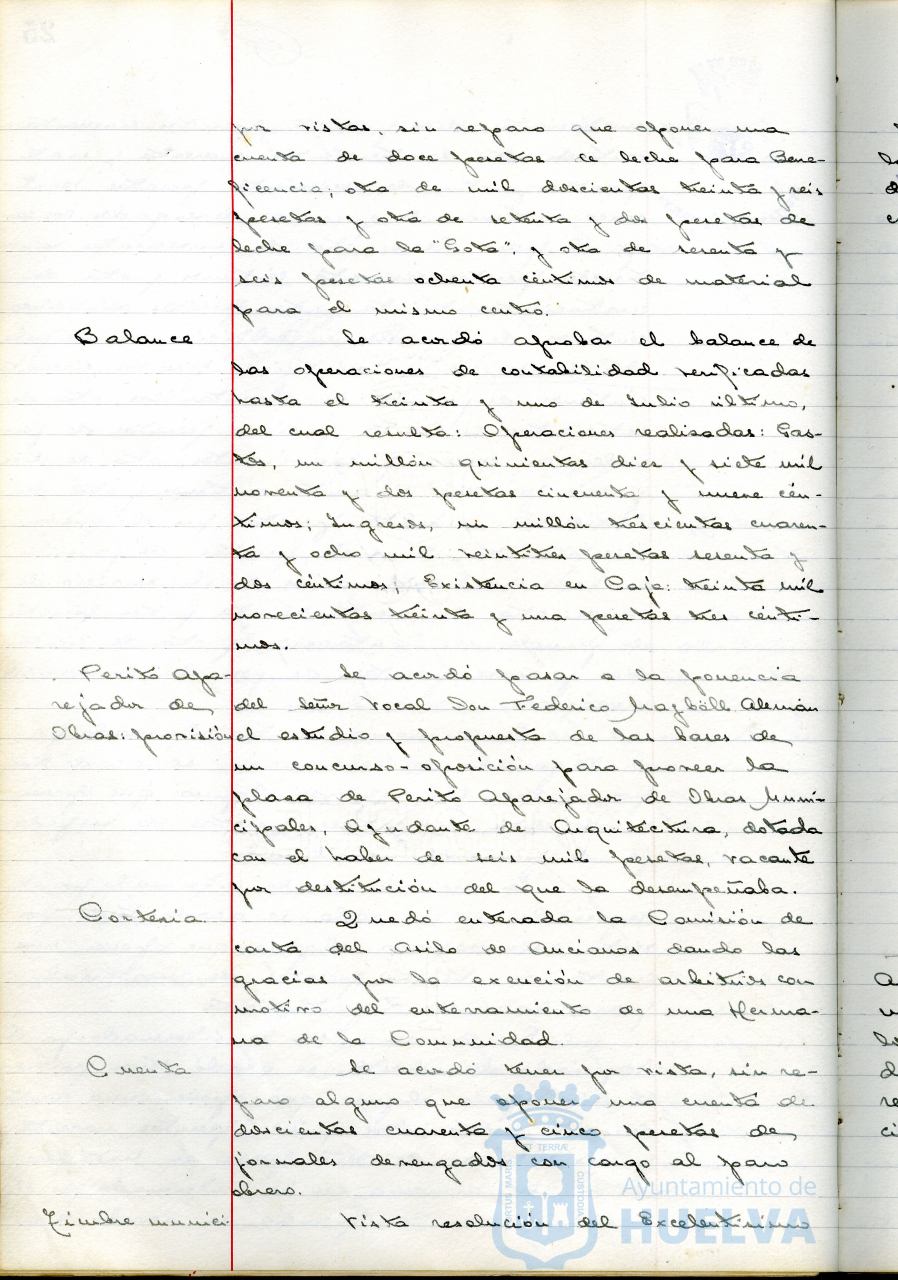 por vistas, sin reparo que oponer una
cuenta de doce pesetas de leche para Bene-
ficencia; otra de mil doscientas treinta y seis
pesetas y otra de setenta y dos pesetas de
leche para la "Gota", y otra de sesenta y
seis pesetas ochenta céntimos de material
para el mismo centro.
Balance
Se acordó aprobar el balance de
las operaciones de contabilidad verificadas
hasta el treinta y uno de Julio último,
del cual resulta: Operaciones realizadas: Gas-
tos, un millón quinientas diez y siete mil
noventa y dos pesetas cincuenta y nueve cén-
timos; Ingresos, un millón trescientas cuaren-
ta y ocho mil veintitres pesetas sesenta y
dos céntimos; Existencia en Caja: treinta mil
novecientas treinta y una pesetas tres cénti-
mos.
Perito Apa-
rejador de
Obras: provisión
Se acordó pasar a la ponencia
del Señor Vocal Don Federico Alemán
el estudio y propuesta de las bases de
un concurso-oposición para proveer la
plaza de Perito Aparejador de Obras Muni-
cipales, Ayudante de Arquitectura, dotada
con el haber de seis mil pesetas, vacante
por destitución del que la desempeñaba.
Cortesia
Quedó enterada la Comisión de
carta del Asilo de Ancianos dando las
gracias por la exención de arbitrios con
motivo del enterramiento de una Herma-
na de la Comunidad.
Cuenta
Se acordó tener por vista, sin re-
paro alguno que oponer una cuenta de
doscientas cuarenta y cinco pesetas de
jornales devengados con cargo al paro
obrero.
Timbre munici-
Vista resolución del Excelentísimo
Ayuntamiento de
HUELVA